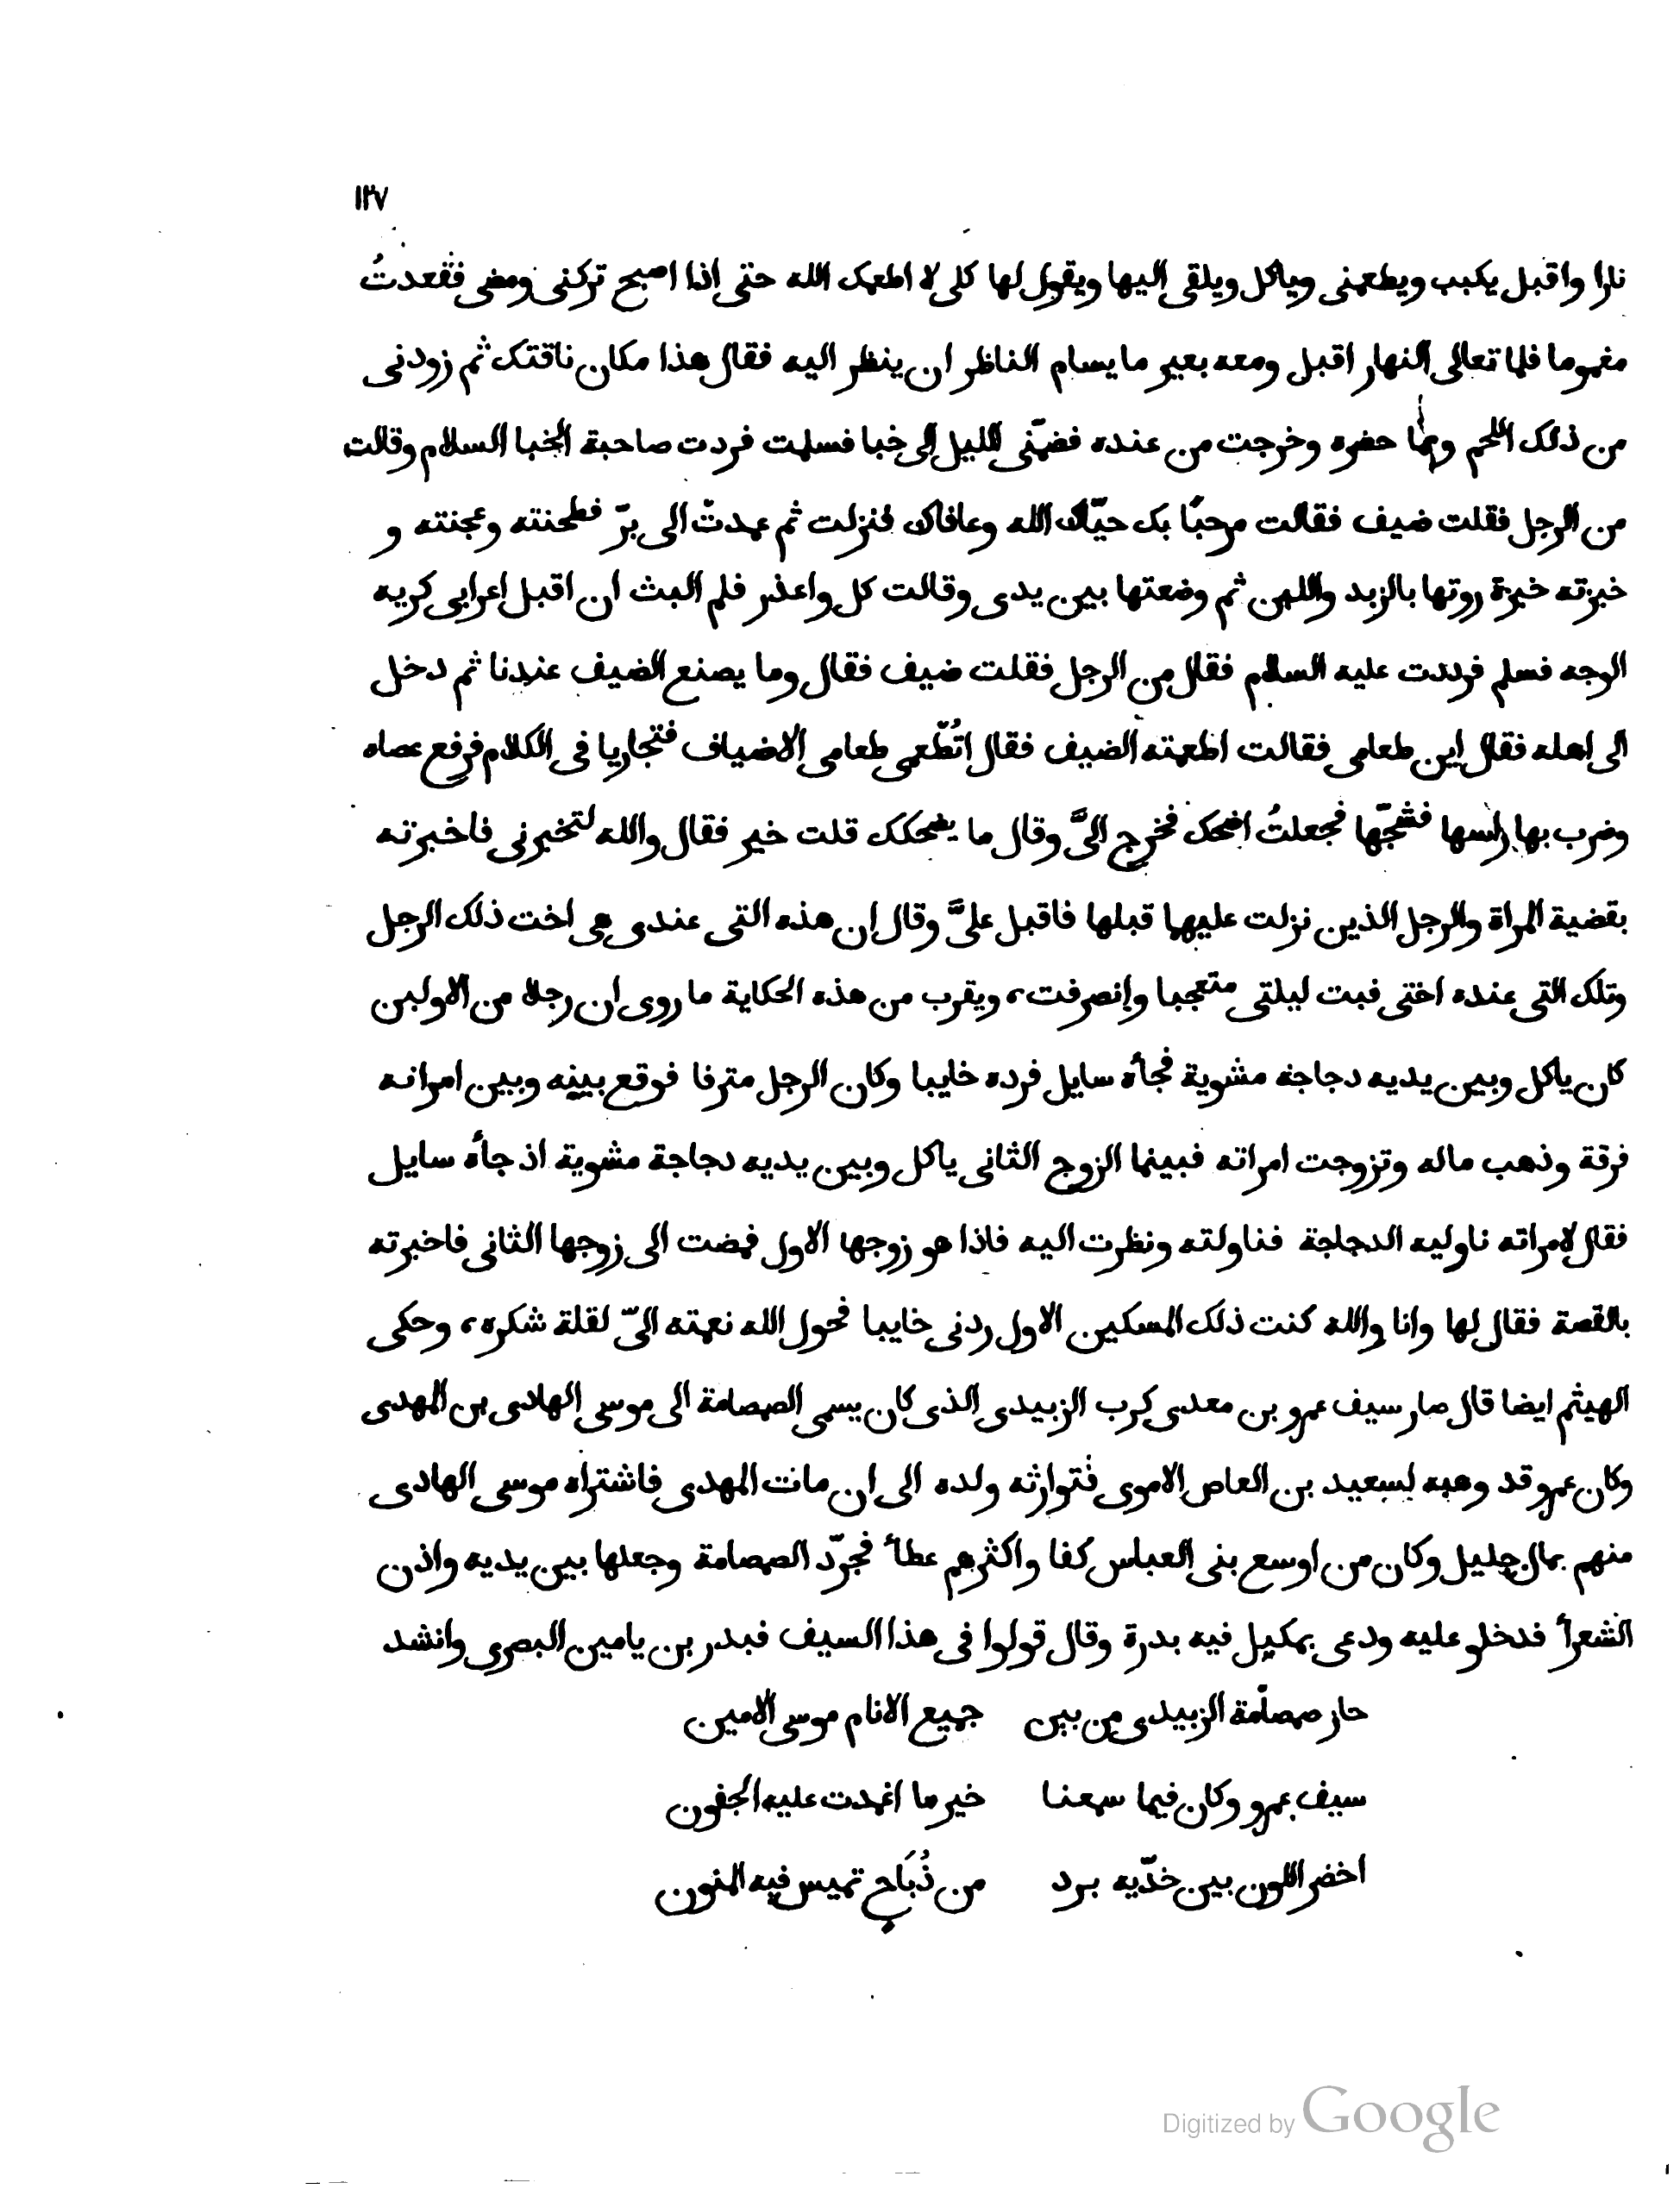 ١٣٧
نارا واقبل يكبب ويطعمنى وياكل ويلقى اليها ويقول لها كلى لا اطعمك الله حتى اذا اصبح تركنى ومضى فقعدتُ
مغموما فلما تعالى النهار اقبل ومعه بعير ما يسام الناظر ان ينظر اليه فقال هذا مكان ناقتك ثم زودنى
من ذلك اللحم ومما حضره وخرجت من عنده فضمّنى الليل الى خبا فسلمت فردت صاحبة الخبا السلام وقالت
من الرجل فقلت ضيف فقالت مرحبًا بك حيّاك الله وعافاك فنزلت ثم عمدتْ الى برّ فطحنته وعجنته و
خبزته خبزة روتها بالزبد واللبن ثم وضعتها بين يدى وقالت كل واعذر فلم البث ان اقبل اعرابى كريه
الوجه فسلم فرددت عليه السلام فقال من الرجل فقلت ضيف فقال وما يصنع الضيف عندنا ثم دخل
الى اهله فقال اين طعامى فقالت اطعمته الضيف فقال اتُطّعمى طعامى الاضياف فتجاريا فى الكلام فرفع عصاه
وضرب بها راسها فشجّها فجعلتُ اضحك فخرج الىَّ وقال ما يضحكك قلت خير فقال والله لتخبرنى فاخبرته
بقضية المراة والرجل الذين نزلت عليهما قبلها فاقبل علىَّ وقال ان هذه التى عندى هى اخت ذلك الرجل
وتلك التى عنده اختى فبت ليلتى متعجبا وانصرفت، ويقرب من هذه الحكاية ما روى ان رجلا من الاولين
كان ياكل وبين يديه دجاجة مشوية فجأه سايل فرده خايبا وكان الرجل مترفا فوقع بينه وبين امراته
فرقة وذهب ماله وتزوجت امراته فبينما الزوج الثانى ياكل وبين يديه دجاجة مشوية اذ جأه سايل
فقال لامراته ناوليه الدجاجة فناولته ونظرت اليه فاذا هو زوجها الاول فمضت الى زوجها الثانى فاخبرته
بالقصة فقال لها وانا والله كنت ذلك المسكين الاول ردنى خايبا فحول الله نعمته الىّ لقلة شكره، وحكى
الهيثم ايضا قال صار سيف عمرو بن معدى كرب الزبيدى الذى كان يسمى الصمصامة الى موسى الهادى بن المهدى
وكان عمرو قد وهبه لسعيد بن العاص الاموى فتوارثه ولده الى ان مات المهدى فاشتراه موسى الهادى
منهم بمال جليل وكان من اوسع بنى العباس كفا واكثرهم عطأ فجرّد الصمصامة وجعلها بين يديه واذن
الشعرأ فدخلو عليه ودعى بمكيل فيه بدرة وقال قولوا فى هذا السيف فبدر بن يامين البصرى وانشد
حاز صمصامة الزبيدى من بين جميع الانام موسى الامين
سيف عمرو وكان فيما سمعنا خير ما اغمدت عليه الجفون
اخضر اللون بين خدّيه برد من ذُبَاح تميس فيه المنون
Digitized by Google